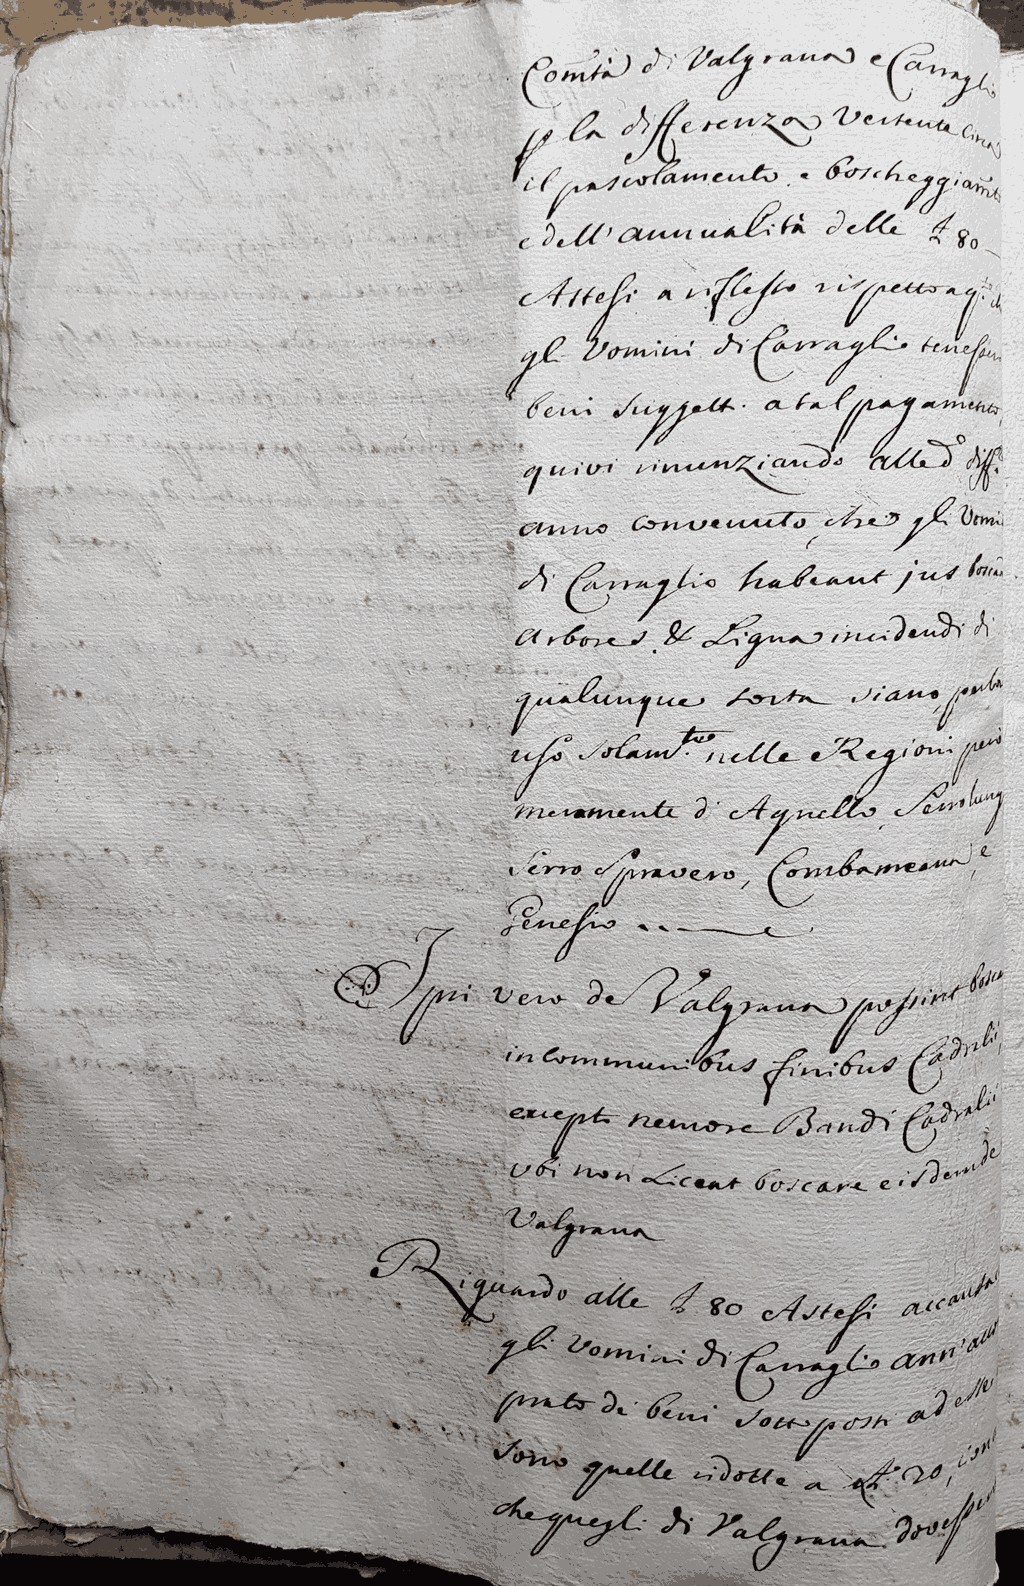 Com̃tà di Valgrana e Carraglio
p la differenza Vertente circa
il pascolamento e boscheggiam̃to
e dell' annualità delle £ 80
Astesi a riflesso rispetto a q.to ch
gli Vomini di Carraglio tenesser
beni suggett. a tal pagamento,
quivi rinunziando alle do diff.
anno convenuto, che gli Vomi
di Carraglio habeant jus bosca
arbores & Ligna incidendi di
qualunque sorta siano, per lor
uso solam.te nelle Regioni però
meramente d' Agnello, Serrolung
Serro Spravero, Combameana, e
Genesio
Ipsi vero de Valgrana possint bosca
in communibus finibus Cadralii,
except nemore Bandi Cadralii
ubi non Liceat boscare eisdem de
Valgrana
Riguardo alle £ 80 Astesi
gli Vomini di Carraglio
di beni sottoposti ad esse
sono quelle ridotte a 20,
che quegli di Valgrana dovesser